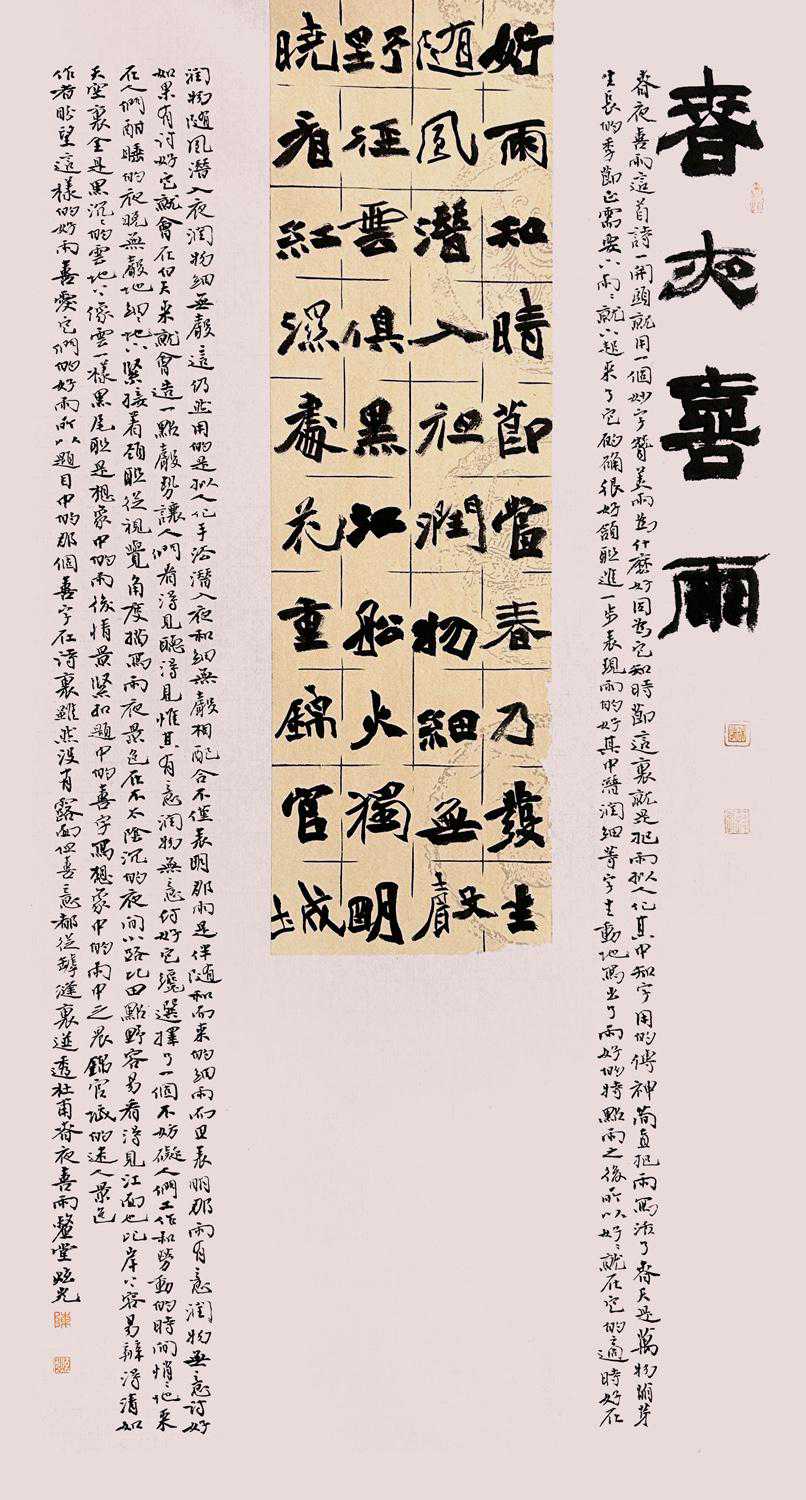 春夜喜雨
春夜喜雨這首詩一開頭就用一個妙字贊美雨為什麼好因為它知時節這裏就是把雨擬人化其中知字用的傳神簡直把雨寫活了春天是萬物萌芽
生長的季節正需要下雨雨就下起來了它的確很好頷聯進一步表現雨的好其中潛潤細等字生動地寫出了雨好的特點雨之後所以好好就在它的適時好在
好雨知時節當春乃發生
隨風潛入潤物細無聲
野徑雲俱黑江船火獨明
曉看紅濕處花重錦官城
潤物隨風潛入夜潤物細無聲這仍然用的是擬人化手法潛入夜和細無聲相配合不僅表明那雨是伴隨和而來的細雨而且表明那雨有意潤物無意討好
如果有討好它就會在白天來就會造一點聲勢讓人們看得見聽得見惟其有意潤物無意討好它纔選擇了一個不妨礙人們工作和勞動的時間悄悄地來
在人們酣睡的夜晚無聲地細細地下緊接着頸聯從視覺角度描寫雨夜景色在不太陰沉的夜間小路比田點野容易看得見江面也比岸上容易辨得清如
天空裏全是黑沉沉的雲地上像雲一樣黑尾聯是想象中的雨後情景緊扣題中的喜字寫想象中的雨中之晨錦官城的迷人景色
作者盼望這樣的好雨喜愛它們的好雨所以題目中的那個喜字在詩裏雖然沒有露面但喜意都從罅縫裏迸透杜甫春夜喜雨鼇堂炫光